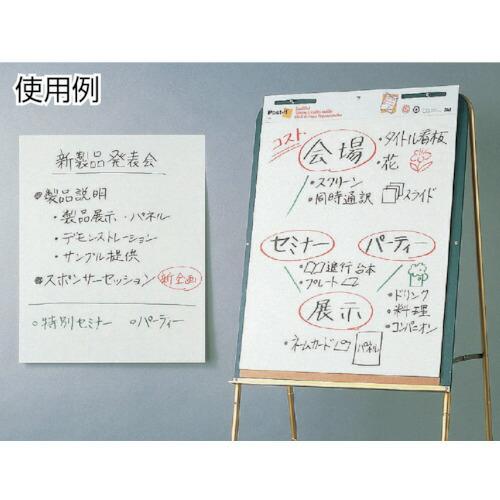 使用例
新製品発表会
製品説明
・製品展示・パネル
・デモンストレーション
・サンプル提供
スポンサーセッション 新企画
特別セミナー
パーティー
Post-it
コスト
会場
・タイトル看板
・花
・スクリーン
・同時通訳
スライド
セミナー
パーティー
・進行台本
・プレート
展示
・ドリンク
・料理
・コンパニオン
・ネームカード
パネル